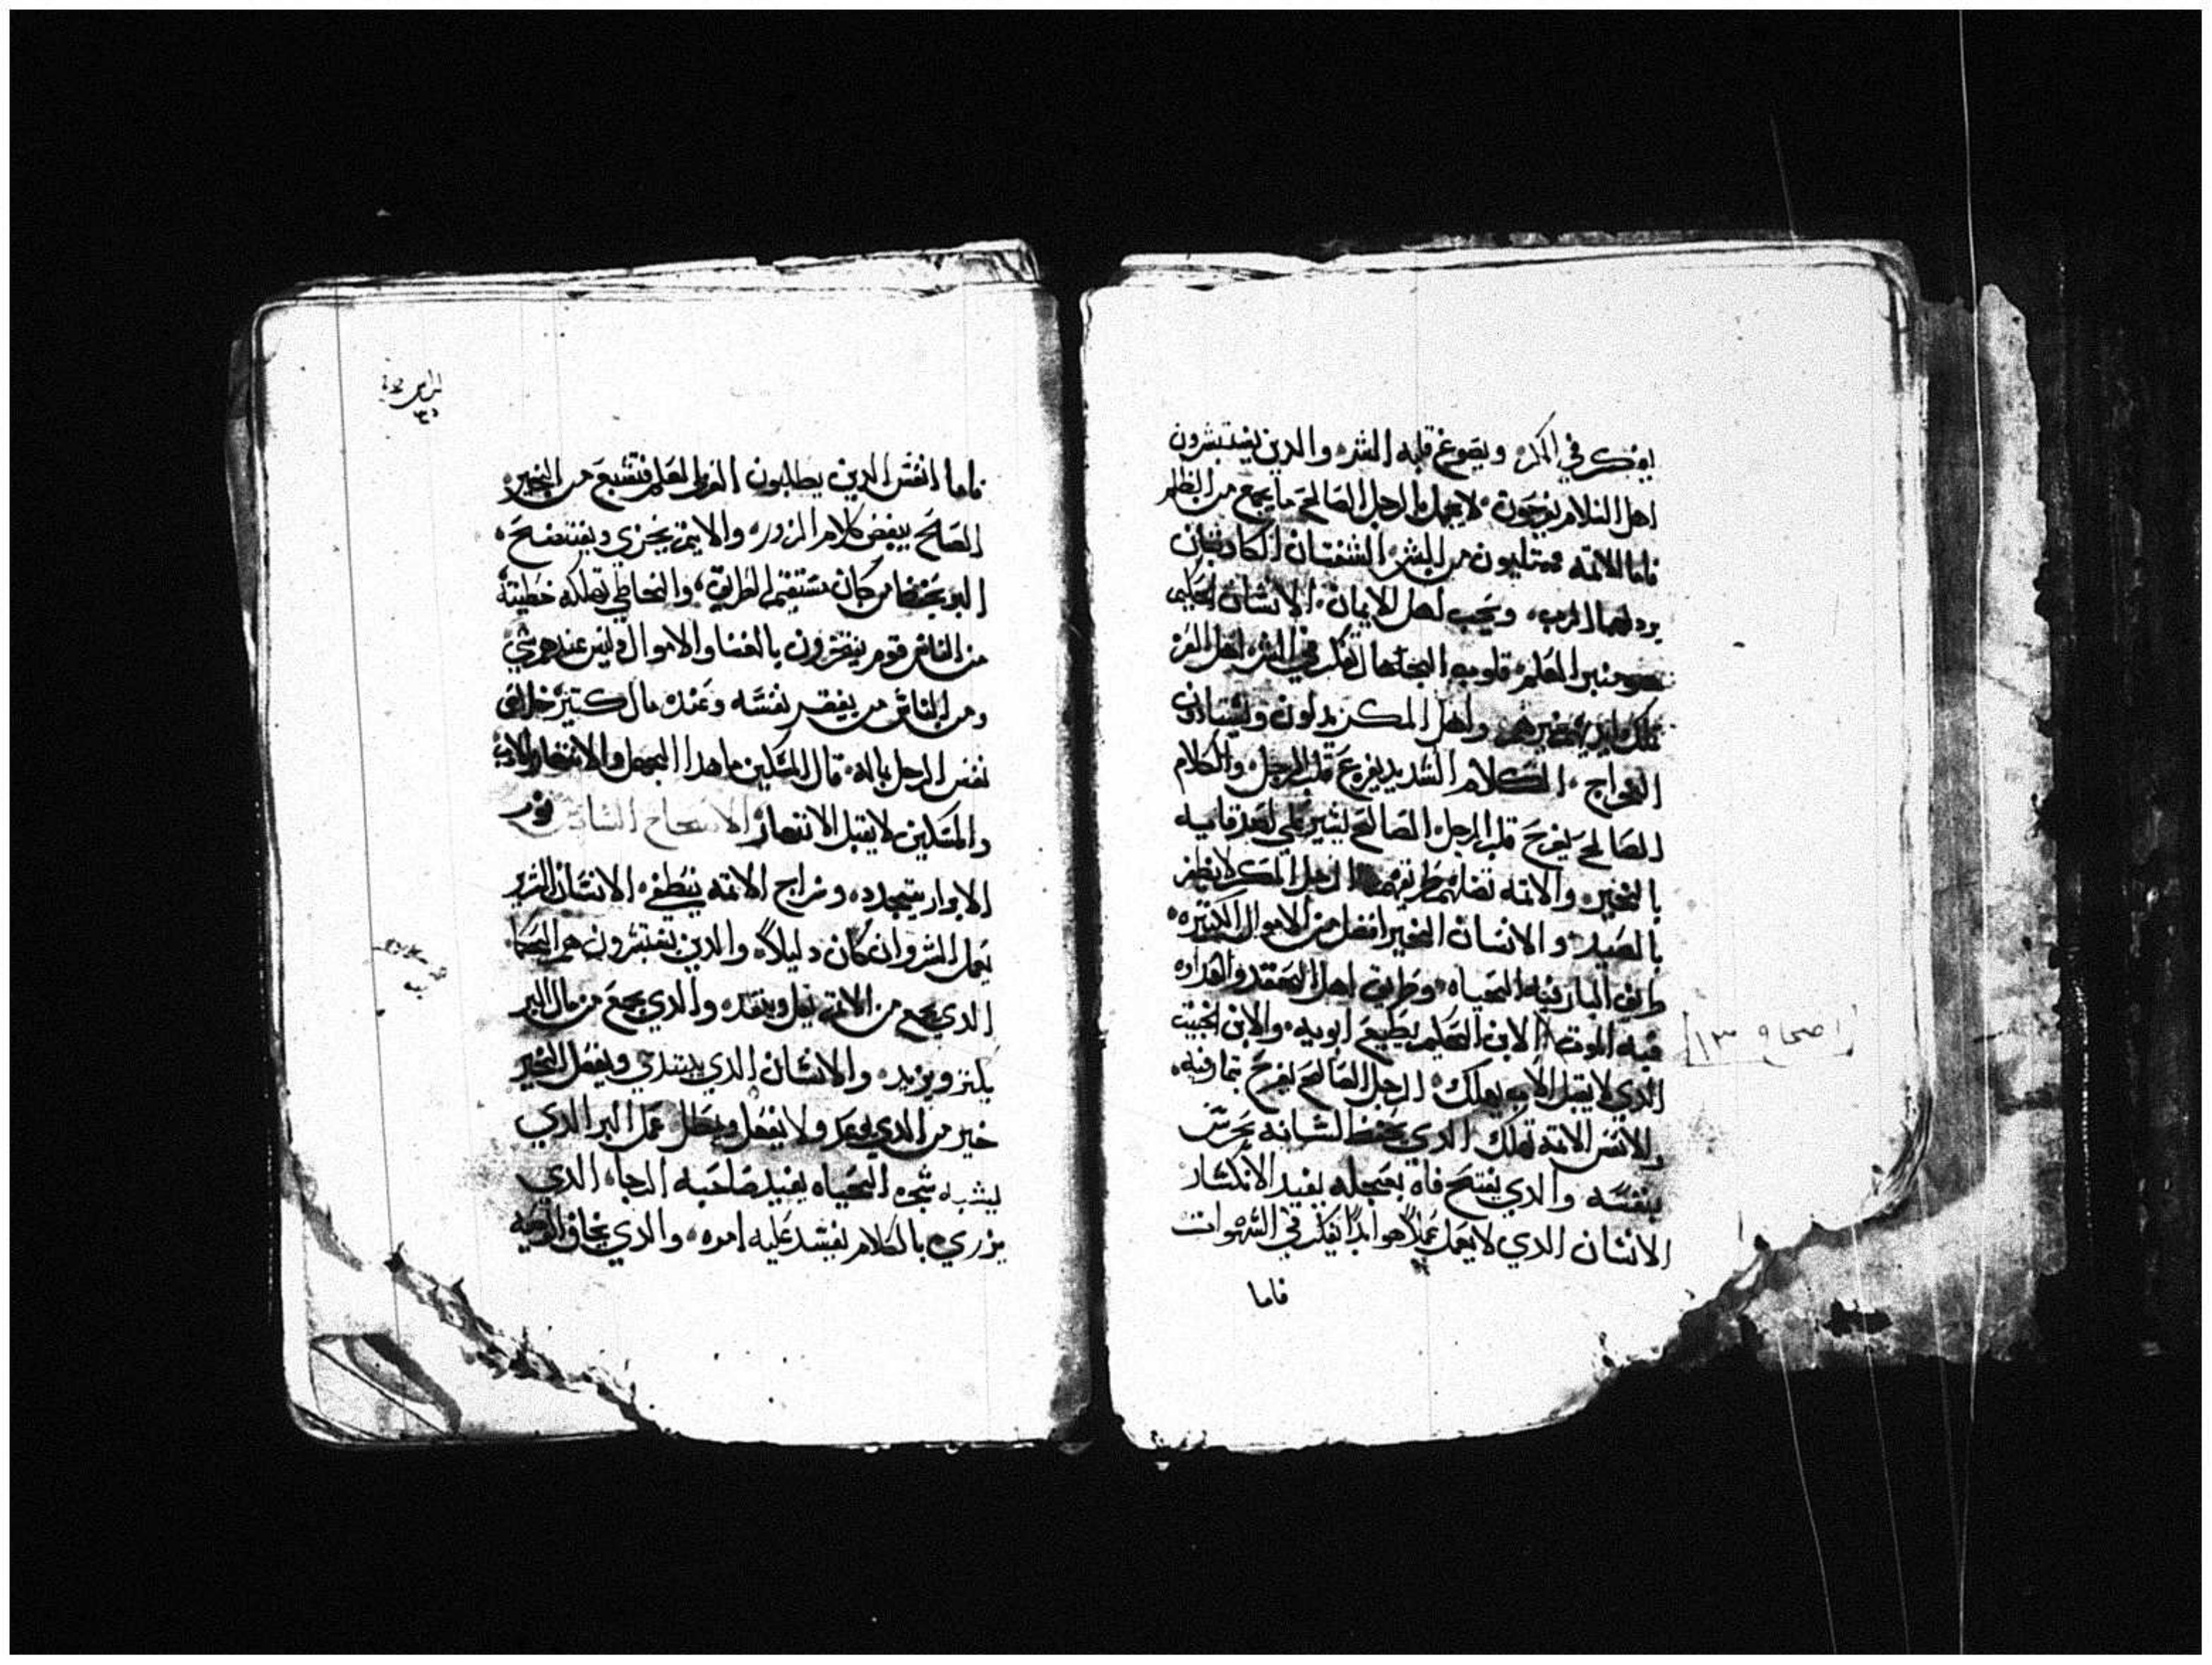 يفكر في المكر ويصوغ قلبه الشر والدين يستبشرون
اهل السلام يفرحون لا يجمل بالرجل الصالح ما يجمع من الظلم
فاما الاتمه ممتليون من الشر الشفتان الكادبتان
يردلهما الرب ويحب اهل الايمان الانسان الحكيم
هو منبر العلم قلوب الجهال تفكر في الشر اهل العز
واهل المكر يدلون ويشبادون
الخراج الكلام الشديد يفزع قلب الرجل والكلام
الصالح يفرح قلب الرجل الصالح يشير على لصدقايه
بالخير والاتمه تضلهم طريقهم الرجل المكر لا يظفر
بالصيد والانسان الخير افضل من الاموال الكتيره
طريق البار فيه الحياه وطريق اهل الحقد والغداوه
فيه الموت الابن الحكيم يطيع ابويه والابن الخبيت
الدي لا يقبل الاب يهلك الرجل الصالح يفرح بتمار فيه
والانفس الاتمه تهلك الدي يحفظ لسانه يحرس
بنفسه والدي يفتح فاه بعجله يفيد الانكسار
الانسان الدي لا يعمل عملاً هو ابداً يفكر في الشهوات
فاما
اصحاح ١٣
فاما انفس الدين يطلبون العزا لعلم فتشبع من الخير
الصالح يبغض كلام الزور والاتيم يخزي ويفتضح
البر يحفظ من كان مستقيم الطريق والخاطي تهلكه خطيته
من الناس قوم يفتخرون بالغنا والاموال وليس عندهم شي
ومن الناس من يفقر نفسه وعنده مال كتير خلاص
نفس الرجل ماله قال المسكين ما هدا الجهل والافتخار
والمسكين لا يقبل الانتهار الاصحاح السادس نور
الابرار يتجدد وسراج الاتمه ينطفي الانسان الشرير
يعمل الشر وان كان دليلاً والدين يفتشرون هم الحكما
الدي يجمع من الاتم يقل وينفد والدي يجمع من مال البر
يكنز ويزيد والانسان الدي يبتدي ويفعل الخير
خير من الدي يوعد ولا يفعل ويطل عمل البر الدي
يشبه شجره الحياه يفيد صاحبه الرجا الدي
يزري بالكلام يفسد عليه امره والدي يخاف الوصيه